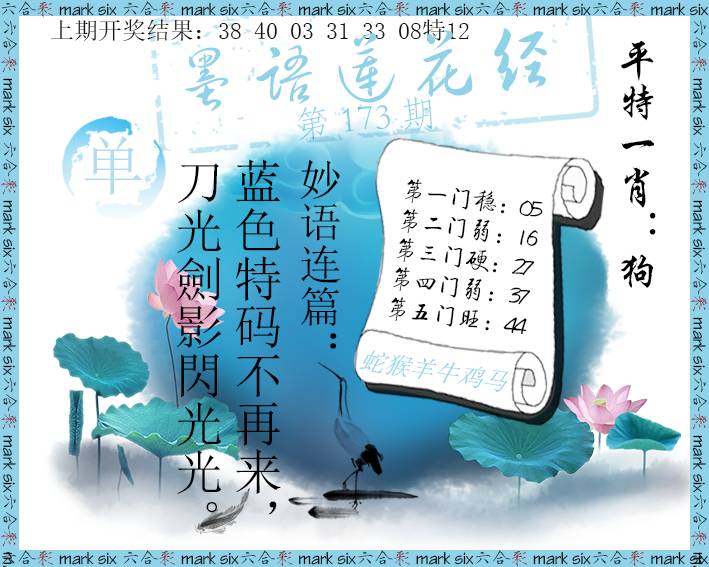 上期开奖结果：38 40 03 31 33 08特12
墨语莲花经
第 173 期
单
平特一肖：狗
妙语连篇：
蓝色特码不再来，
刀光劍影閃光光。
第一门稳：05
第二门弱：16
第三门硬：27
第四门弱：37
第五门旺：44
蛇猴羊牛鸡马
六合彩 mark six六合彩 mark six六合彩 mark six六合彩 mark six六合彩 mark six六合彩